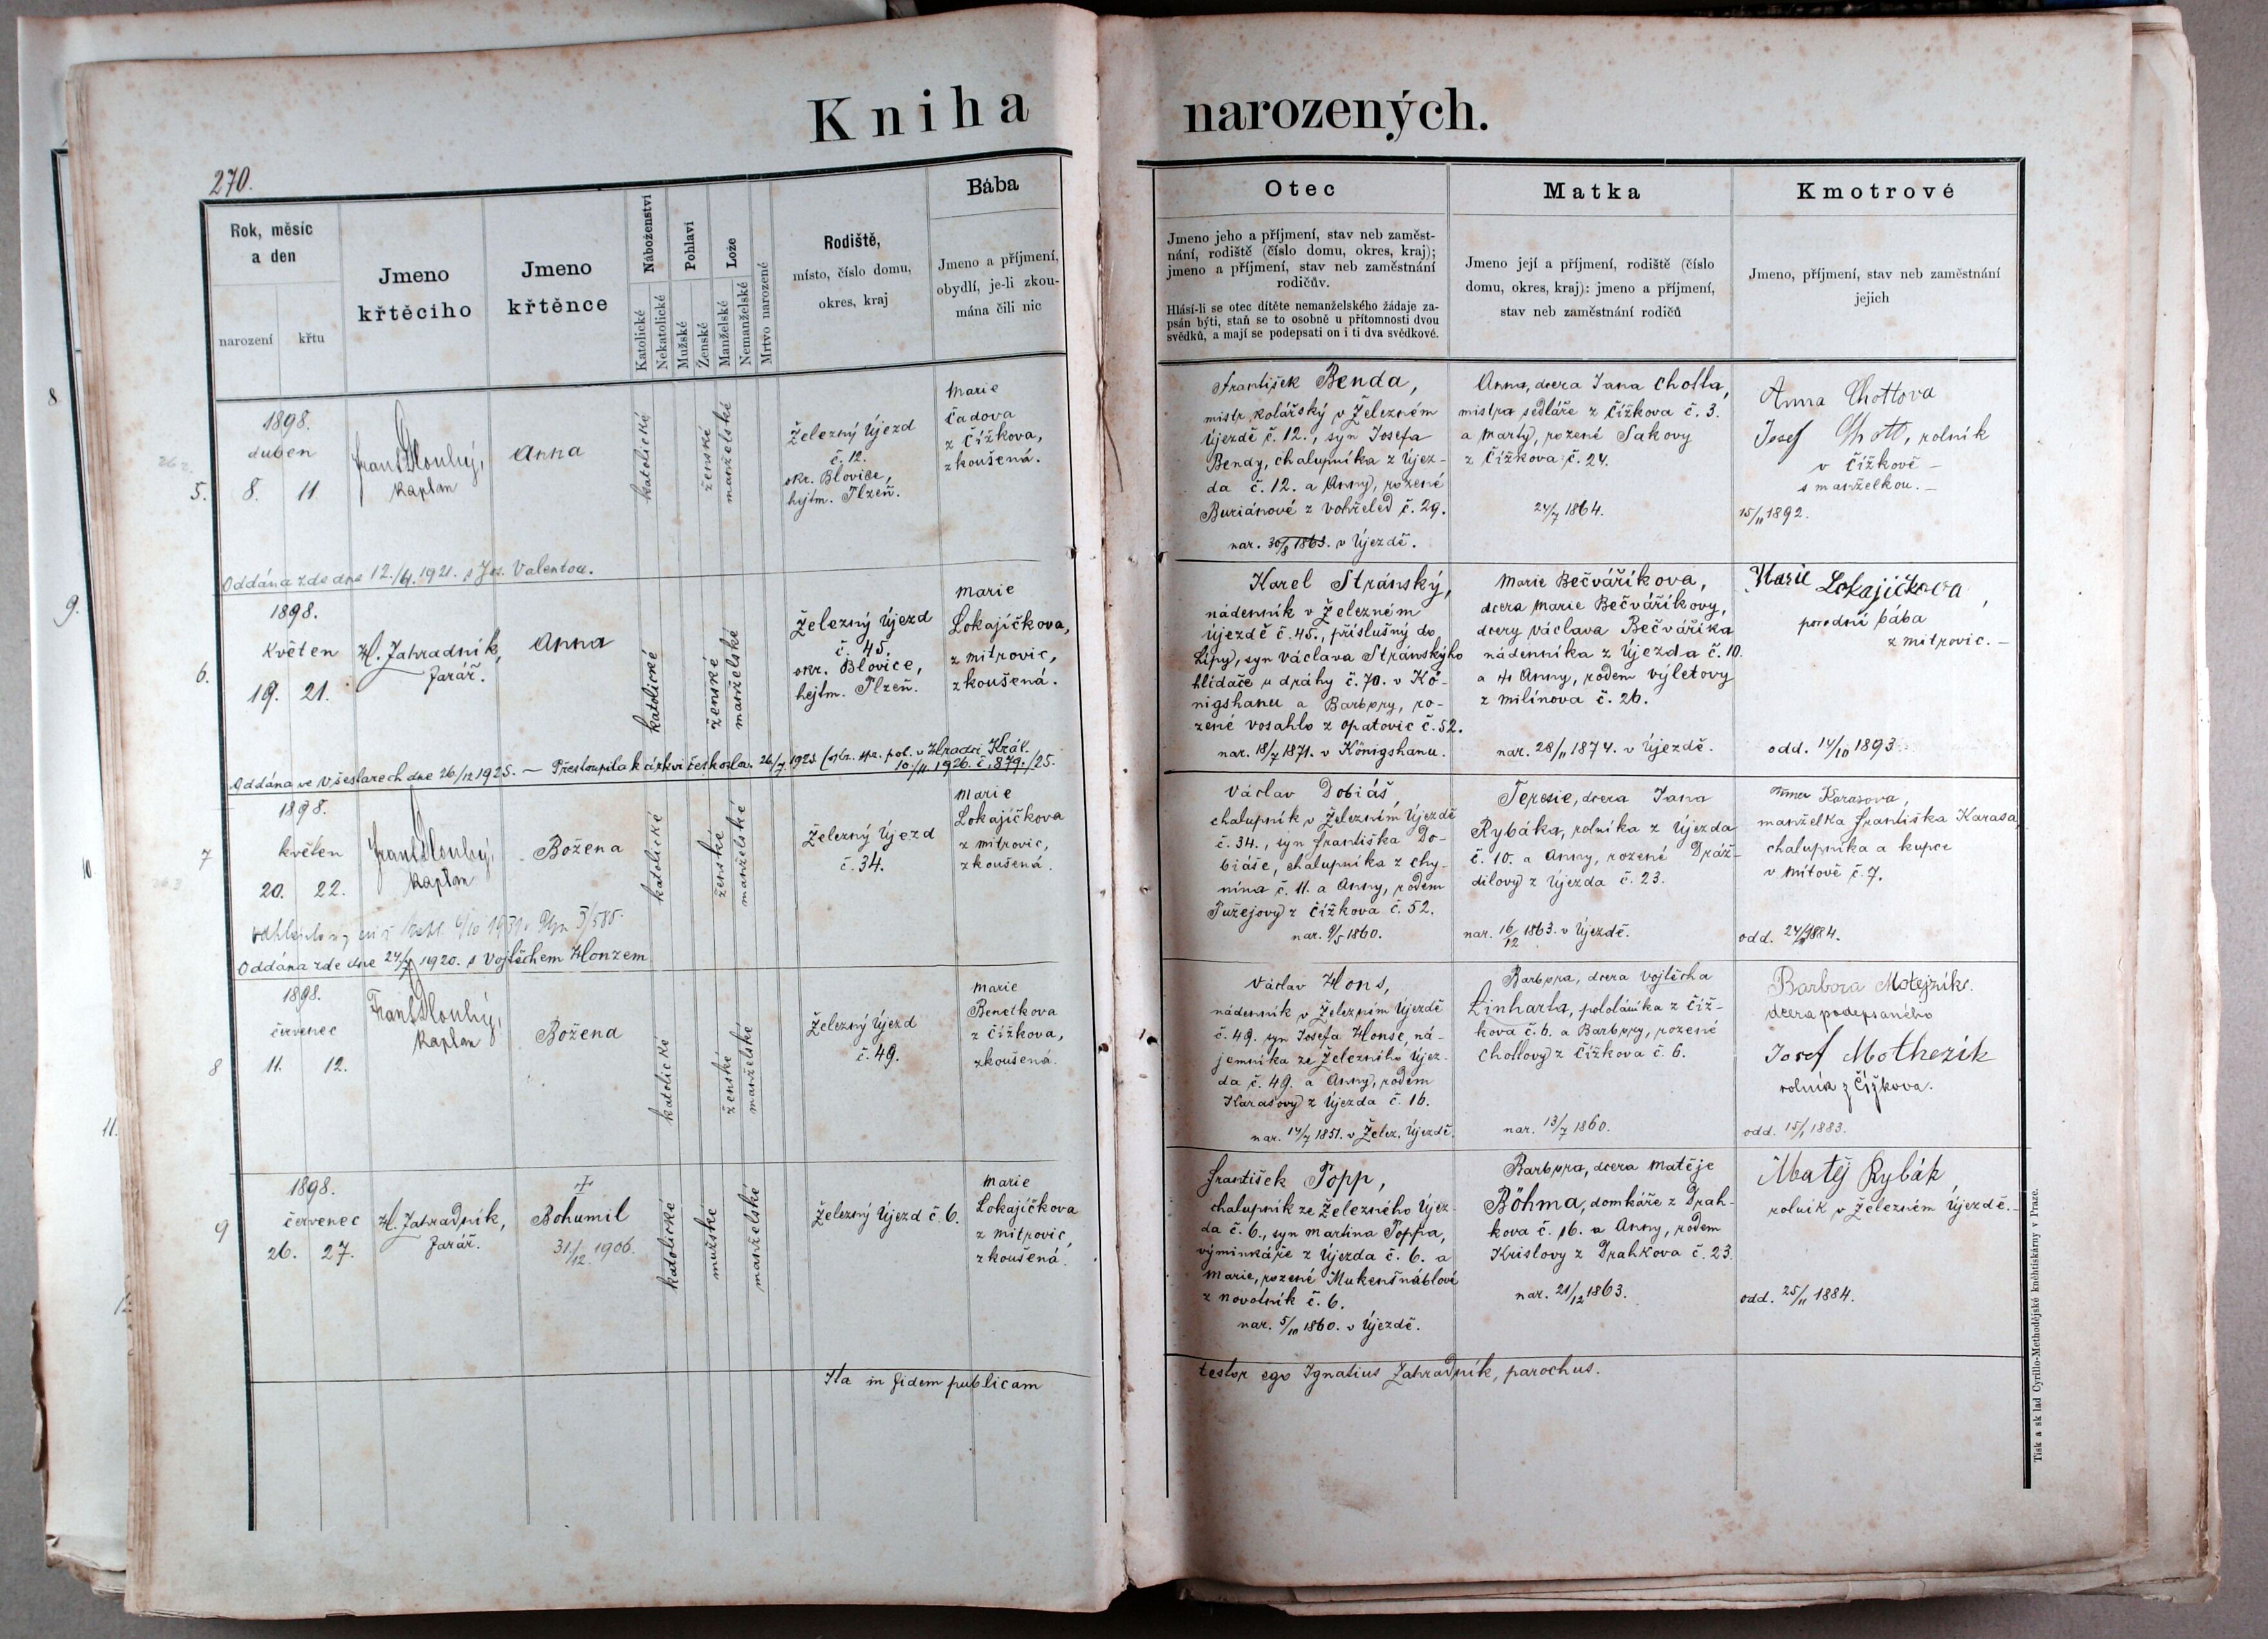 Kniha narozených.
270.
Rok, měsíc
a den
narození
křtu
Jmeno
křtěcího
Jmeno
křtěnce
Náboženství
Katolické
Nekatolické
Pohlaví
Mužské
Ženské
Lože
Manželské
Nemanželské
Mrtvo narozené
Rodiště,
místo, číslo domu,
okres, kraj
Bába
Jmeno a příjmení,
obydlí, je-li zkou-
mána čili nic
Otec
Jmeno jeho a příjmení, stav neb zaměst-
nání, rodiště (číslo domu, okres, kraj);
jmeno a příjmení, stav neb zaměstnání
rodičův.
Hlásí-li se otec dítěte nemanželského žádaje za-
psán býti, staň se to osobně u přítomnosti dvou
svědků, a mají se podepsati on i ti dva svědkové.
Matka
Jmeno její a příjmení, rodiště (číslo
domu, okres, kraj): jmeno a příjmení,
stav neb zaměstnání rodičů
Kmotrové
Jmeno, příjmení, stav neb zaměstnání
jejich
5.
1898.
duben
8. 11.
Frant. Dlouhý,
kaplan
Anna
katolické
ženské
manželské
Železný Újezd
č. 12.
okr. Blovice,
hejtm. Plzeň.
Marie
Čadova
z Čížkova,
zkoušená.
František Benda,
mistr kolářský v Železném
Újezdě č. 12., syn Josefa
Bendy, chalupníka z Újez-
da č. 12. a Anny, rozené
Buriánové z Vohřeled č. 29.
nar. 30/8 1863. v Újezdě.
Anna, dcera Jana Chotta,
mistra sedláře z Čížkova č. 3.
a Marty, rozené Sakovy
z Čížkova č. 24.
24/7 1864.
Anna Chottova
Josef Chott, rolník
v Čížkově –
s manželkou. –
15/11 1892.
Oddána zde dne 12./4. 1921. s Jos. Valentou.
6.
1898.
květen
19. 21.
H. Zahradník,
farář.
Anna
katolické
ženské
manželské
Železný Újezd
č. 45.
okr. Blovice,
hejtm. Plzeň.
Marie
Lokajíčkova,
z Mitrovic,
zkoušená.
Karel Stránský,
nádenník v Železném
Újezdě č. 45., příslušný do
Lípy, syn Václava Stránskýho
hlídače u dráhy č. 70. v Kö-
nigshanu a Barbory, ro-
zené Vosahlo z Opatovic č. 52.
nar. 18/7 1871. v Königshanu.
Marie Bečváříkova,
dcera Marie Bečváříkovy,
dcery Václava Bečváříka
nádenníka z Újezda č. 10.
a Anny, rodem Výletovy
z Milínova č. 26.
nar. 28/11 1874. v Újezdě.
Marie Lokajíčkova,
porodní bába
z Mitrovic. –
odd. 14/10 1893.
Oddána ve Všeslarech dne 26/12 1925. – Přestoupila k církvi českoslov. 26/7 1925. pol. v Hradci Král.
10./11. 1926. č. 879./25.
7
1898.
květen
20. 22.
Frant. Dlouhý,
kaplan
Božena
katolické
ženské
manželské
Železný Újezd
č. 34.
Marie
Lokajíčkova
z Mitrovic,
zkoušená.
Václav Dobiáš,
chalupník v Železném Újezdě
č. 34., syn Františka Do-
biáše, chalupníka z Chy-
nína č. 11. a Anny, rodem
Pužejovy z Čížkova č. 52.
nar. 9/5 1860.
Teresie, dcera Jana
Rybáka, rolníka z Újezda
č. 10. a Anny, rozené Dráž-
dilovy z Újezda č. 23.
nar. 16/12 1863. v Újezdě.
Anna Karasova,
manželka Františka Karasa,
chalupníka a kupce
v Mítově č. 7.
odd. 1884.
Oddána zde dne 24/7 1920. s Vojtěchem Honzem
8
1898.
červenec
11. 12.
Frant. Dlouhý,
kaplan
Božena
katolické
ženské
manželské
Železný Újezd
č. 49.
Marie
Benetkova
z Čížkova,
zkoušená.
Václav Hons,
nádenník v Železném Újezdě
č. 49. syn Josefa Honse, ná-
jemníka ze Železného Újez-
da č. 49. a Anny, rodem
Karasovy z Újezda č. 16.
nar. 14/7 1851. v Želez. Újezdě.
Barbora, dcera Vojtěcha
Linharta, pololáníka z Číž-
kova č. 6. a Barbory, rozené
Chottovy z Čížkova č. 6.
nar. 13/7 1860.
Barbora Motejzik.
dcera podepsaného
Josef Mothezik
rolník z Čížkova.
odd. 15/1 1883.
9
1898.
červenec
26. 27.
H. Zahradník,
farář.
+
Bohumil
31./12. 1906.
katolické
mužské
manželské
Železný Újezd č. 6.
Marie
Lokajíčkova
z Mitrovic,
zkoušená.
František Popp,
chalupník ze Železného Újez-
da č. 6., syn Martina Poppa,
výminkáře z Újezda č. 6. a
Marie, rozené Mukenšnáblové
z Novotník č. 6.
nar. 5/10 1860. v Újezdě.
Barbora, dcera Matěje
Böhma, domkáře z Drah-
kova č. 16. a Anny, rodem
Kristovy z Drahkova č. 23.
nar. 21/12 1863.
Matěj Rybák,
rolník v Železném Újezdě. –
odd. 25/11 1884.
Ita in fidem publicam
testor ego Ignatius Zahradník, parochus.
Tisk a sklad Cyrillo-Methodějské knihtiskárny v Praze.